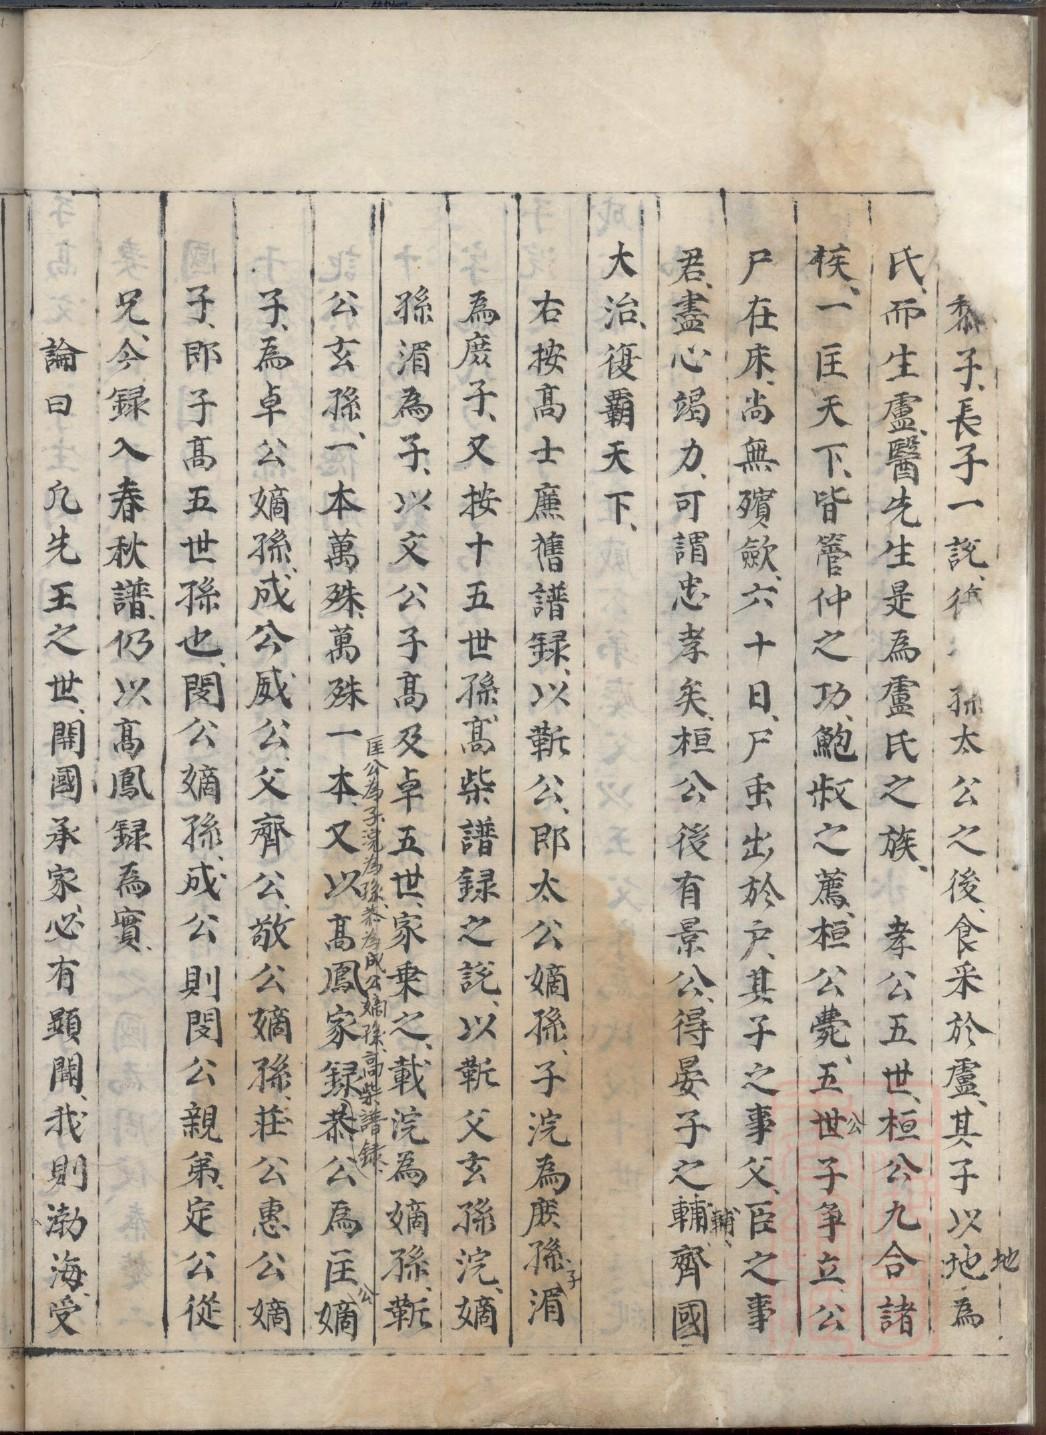 黍子、長子一說、後孫太公之後、食采於盧、其子以地為
氏、而生盧醫先生是為盧氏之族、　孝公五世、桓公九合諸
侯、一匡天下、皆管仲之功、鮑叔之薦、桓公薨、五公世子爭立、公
尸在床、尚無殯歛、六十日、尸虫出於户、其子之事父、臣之事
君、盡心竭力、可謂忠孝矣、桓公後有景公、得晏子之輔、齊國
大治、復霸天下、
右按高士廉舊譜録、以靳公、郎太公嫡孫、子浣為庶孫、子湄
為庶子、又按十五世孫、高柴譜録之説、以靳父玄孫浣、嫡
孫湄為子、以文公子高及卓五世、家乗之、載浣為嫡孫、靳
匡公為子浣為孫、恭為成公嫡孫、高柴譜録、
公玄孫、一本萬殊、萬殊一本、又以高鳳家録、恭公為匡公嫡
子、為卓公嫡孫、成公威公、父齊公、敬公嫡孫、莊公惠公嫡
子、郎子高五世孫也、閔公嫡孫、成公則閔公親弟、定公從
兄、今録入春秋譜、仍以高鳳録為實、
論曰凢先王之世、開國承家、必有顕聞、我則渤海、受
輔、
地